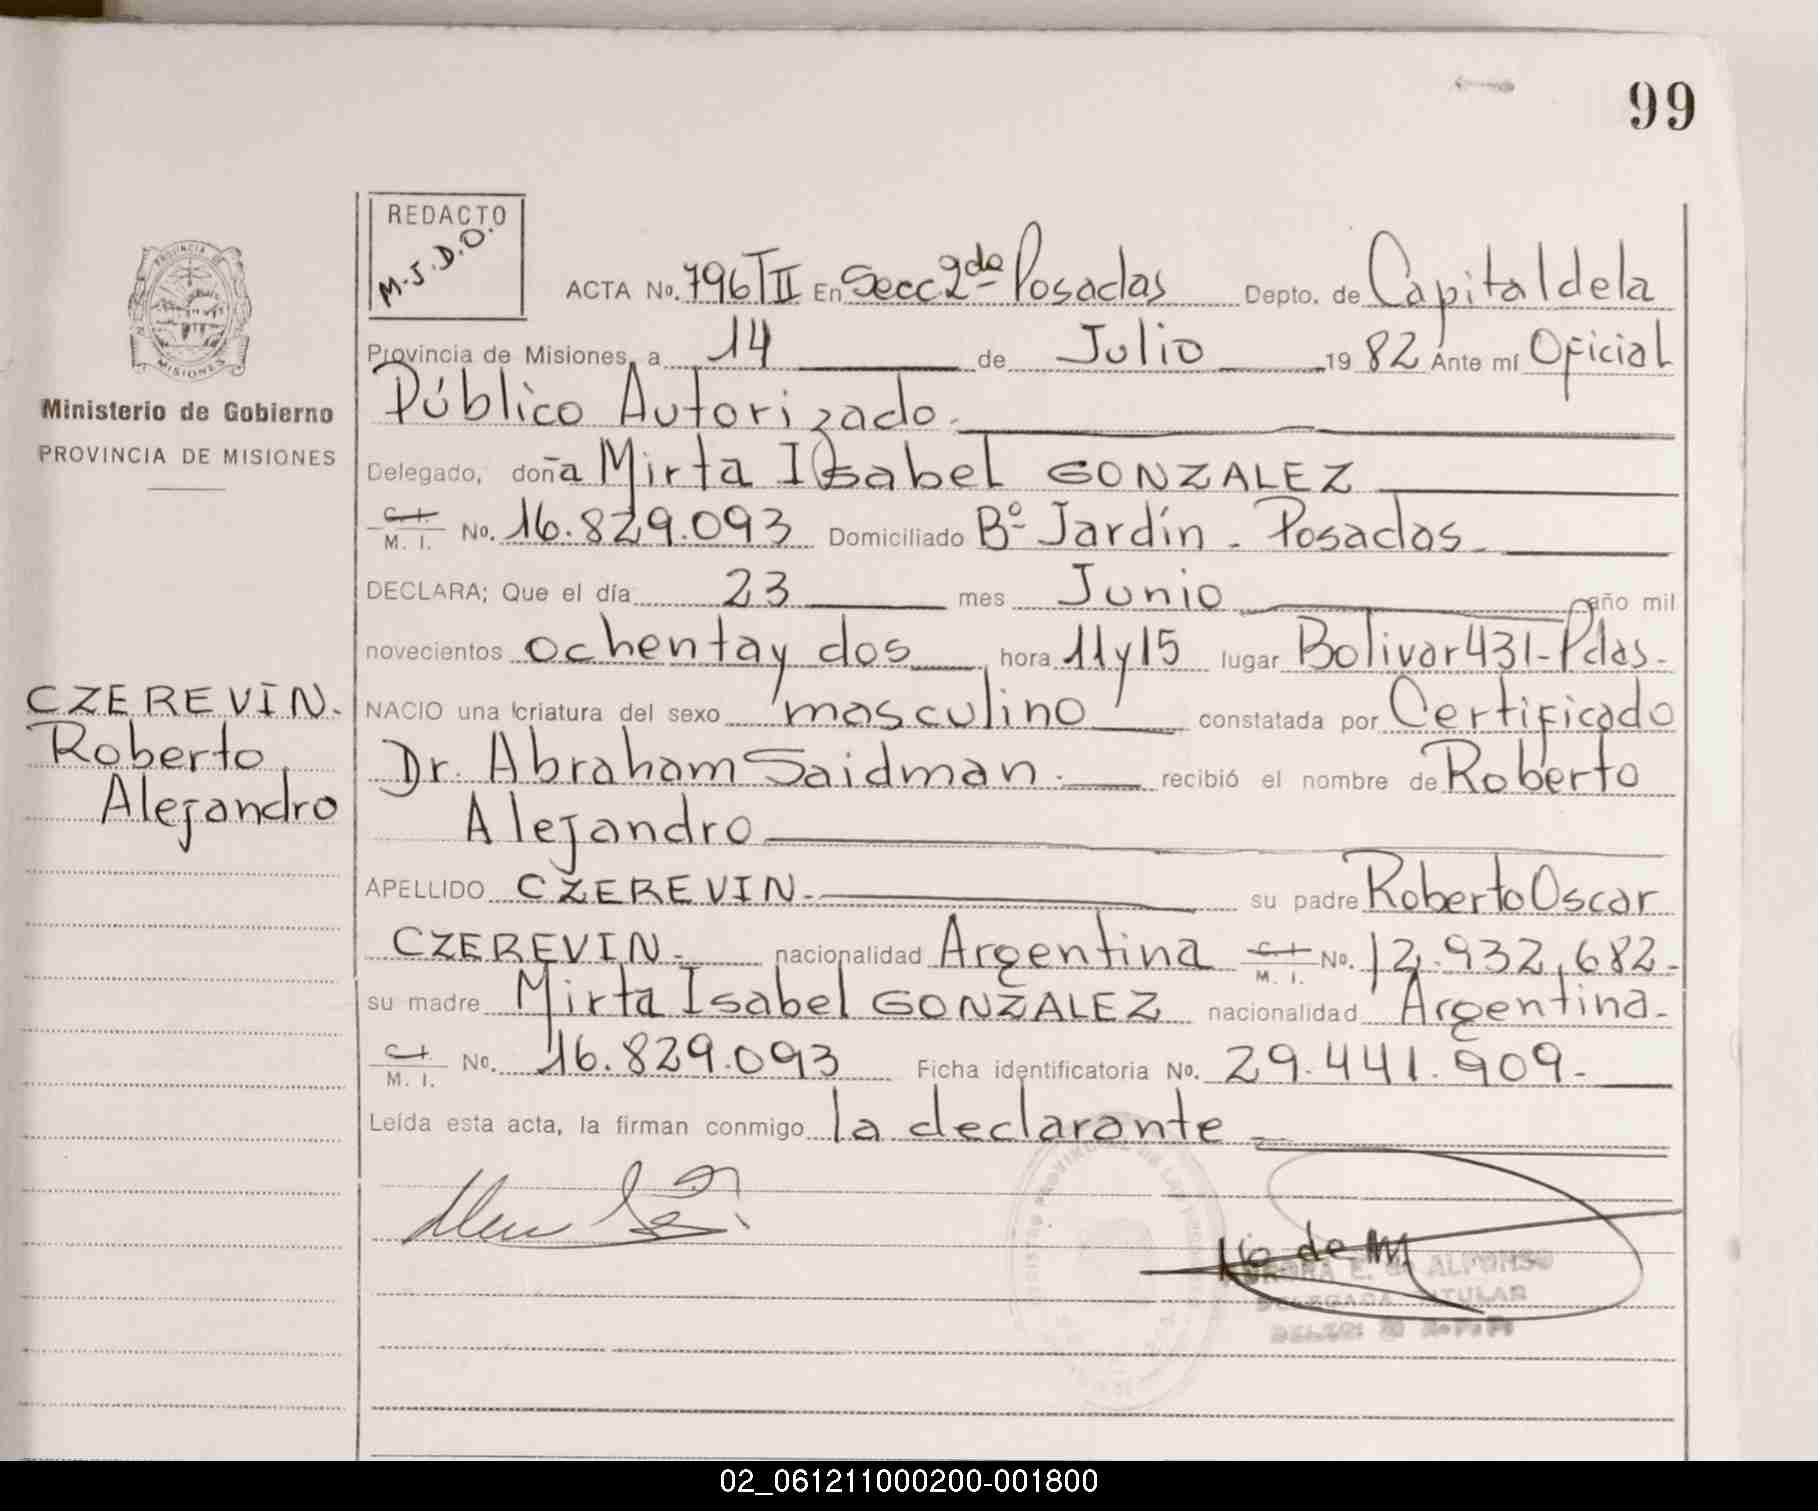 99
REDACTO
M.J.D.O.
ACTA No. 796 T II En Secc 2da Posadas Depto. de Capital de la
Provincia de Misiones, a 14 de Julio 1982 Ante mí Oficial
Público Autorizado.
Ministerio de Gobierno
PROVINCIA DE MISIONES
Delegado, doña Mirta Isabel GONZALEZ
C. I.
M. I. No. 16.829.093 Domiciliado Bº Jardín - Posadas -
DECLARA; Que el día 23 mes Junio año mil
novecientos ochenta y dos hora 11 y 15 lugar Bolivar 431 - Pdas -
CZEREVIN.
Roberto
Alejandro
NACIO una criatura del sexo masculino constatada por Certificado
Dr. Abraham Saidman. recibió el nombre de Roberto
Alejandro
APELLIDO CZEREVIN. su padre Roberto Oscar
CZEREVIN. nacionalidad Argentina C. I.
M. I. No. 12.932.682-
su madre Mirta Isabel GONZALEZ nacionalidad Argentina-
C. I.
M. I. No. 16.829.093 Ficha identificatoria No. 29.441.909-
Leída esta acta, la firman conmigo la declarante
E. de ALFONSO
DELEGADA TITULAR
02_061211000200-001800